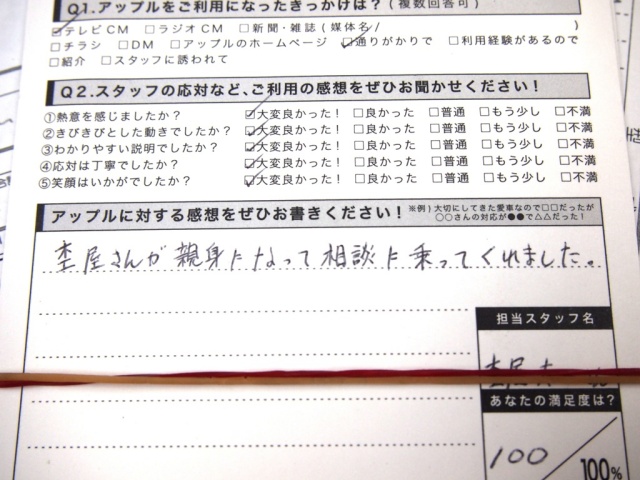 Q1.アップルをご利用になったきっかけは？(複数回答可)
☑テレビCM □ラジオCM □新聞・雑誌(媒体名/ )
□チラシ □DM □アップルのホームページ ☑通りがかりで □利用経験があるので
□紹介 □スタッフに誘われて
Q2.スタッフの応対など、ご利用の感想をぜひお聞かせください！
①熱意を感じましたか？ ☑大変良かった！ □良かった □普通 □もう少し □不満
②きびきびとした動きでしたか？ ☑大変良かった！ □良かった □普通 □もう少し □不満
③わかりやすい説明でしたか？ ☑大変良かった！ □良かった □普通 □もう少し □不満
④応対は丁寧でしたか？ ☑大変良かった！ □良かった □普通 □もう少し □不満
⑤笑顔はいかがでしたか？ ☑大変良かった！ □良かった □普通 □もう少し □不満
アップルに対する感想をぜひお書きください！
※例)大切にしてきた愛車なので□□だったが
○○さんの対応が●●で△△だった！
杢屋さんが親身になって相談に乗ってくれました。
担当スタッフ名
あなたの満足度は？
100/100%